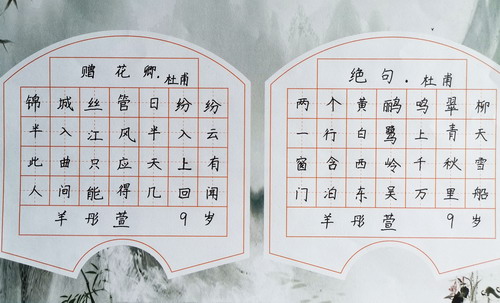 赠花卿.杜甫
锦城丝管日纷纷
半入江风半入云
此曲只应天上有
人间能得几回闻
羊彤萱 9岁
绝句.杜甫
两个黄鹂鸣翠柳
一行白鹭上青天
窗含西岭千秋雪
门泊东吴万里船
羊彤萱 9岁